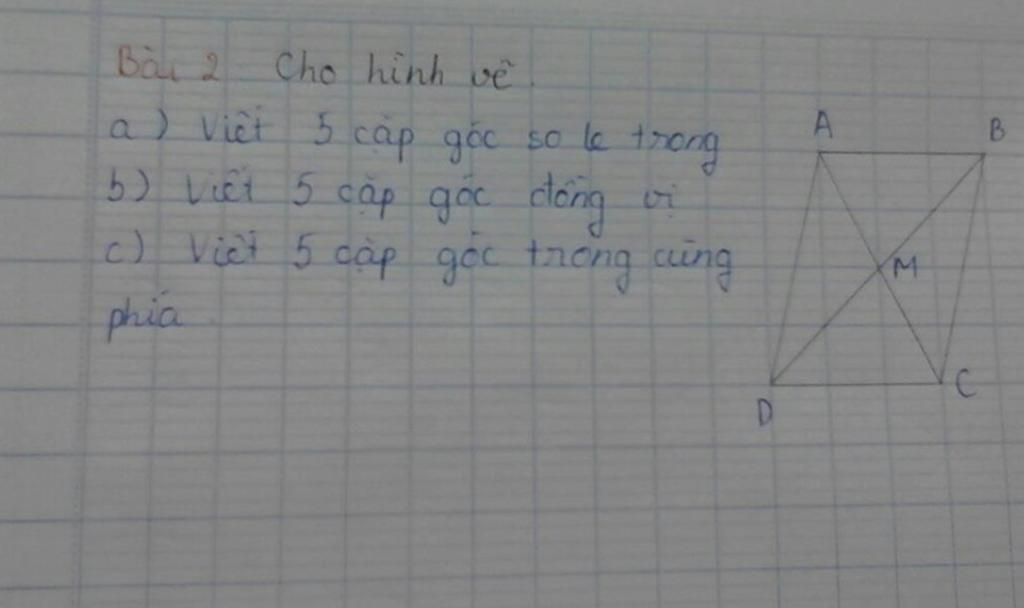 Bài 2 Cho hình vẽ.
a) Viết 5 cặp góc so le trong
b) Viết 5 cặp góc đồng vị
c) Viết 5 cặp góc trong cùng
phía
A B
M
D C